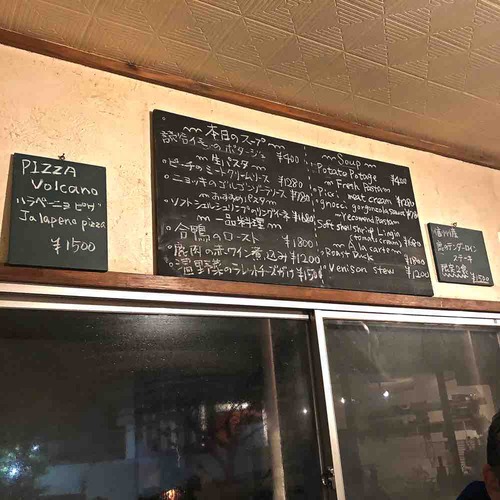 PIZZA
Volcano
ハラペーニョ ピザ
Jalapeno pizza
¥1500
本日のスープ
ポタージュ ¥400
生パスタ
ピーチのミートクリームソース ¥1280
ニョッキのゴルゴンゾーラソース ¥1780
おすすめパスタ
ソフトシュリンプ
一品料理
合鴨のロースト ¥1800
鹿肉の赤ワイン煮込み ¥1200
温野菜のラクレットチーズがけ
Soup
Potato Potage ¥400
Fresh Pasta
Pici meat cream ¥1280
gnocci gorgonzola sauce
Recommend Pasta
Soft shell shrimp Lingin
(tomato cream) ¥1680
A la carte
Roast Duck ¥1800
Venison stew ¥1200
信州産
ステーキ